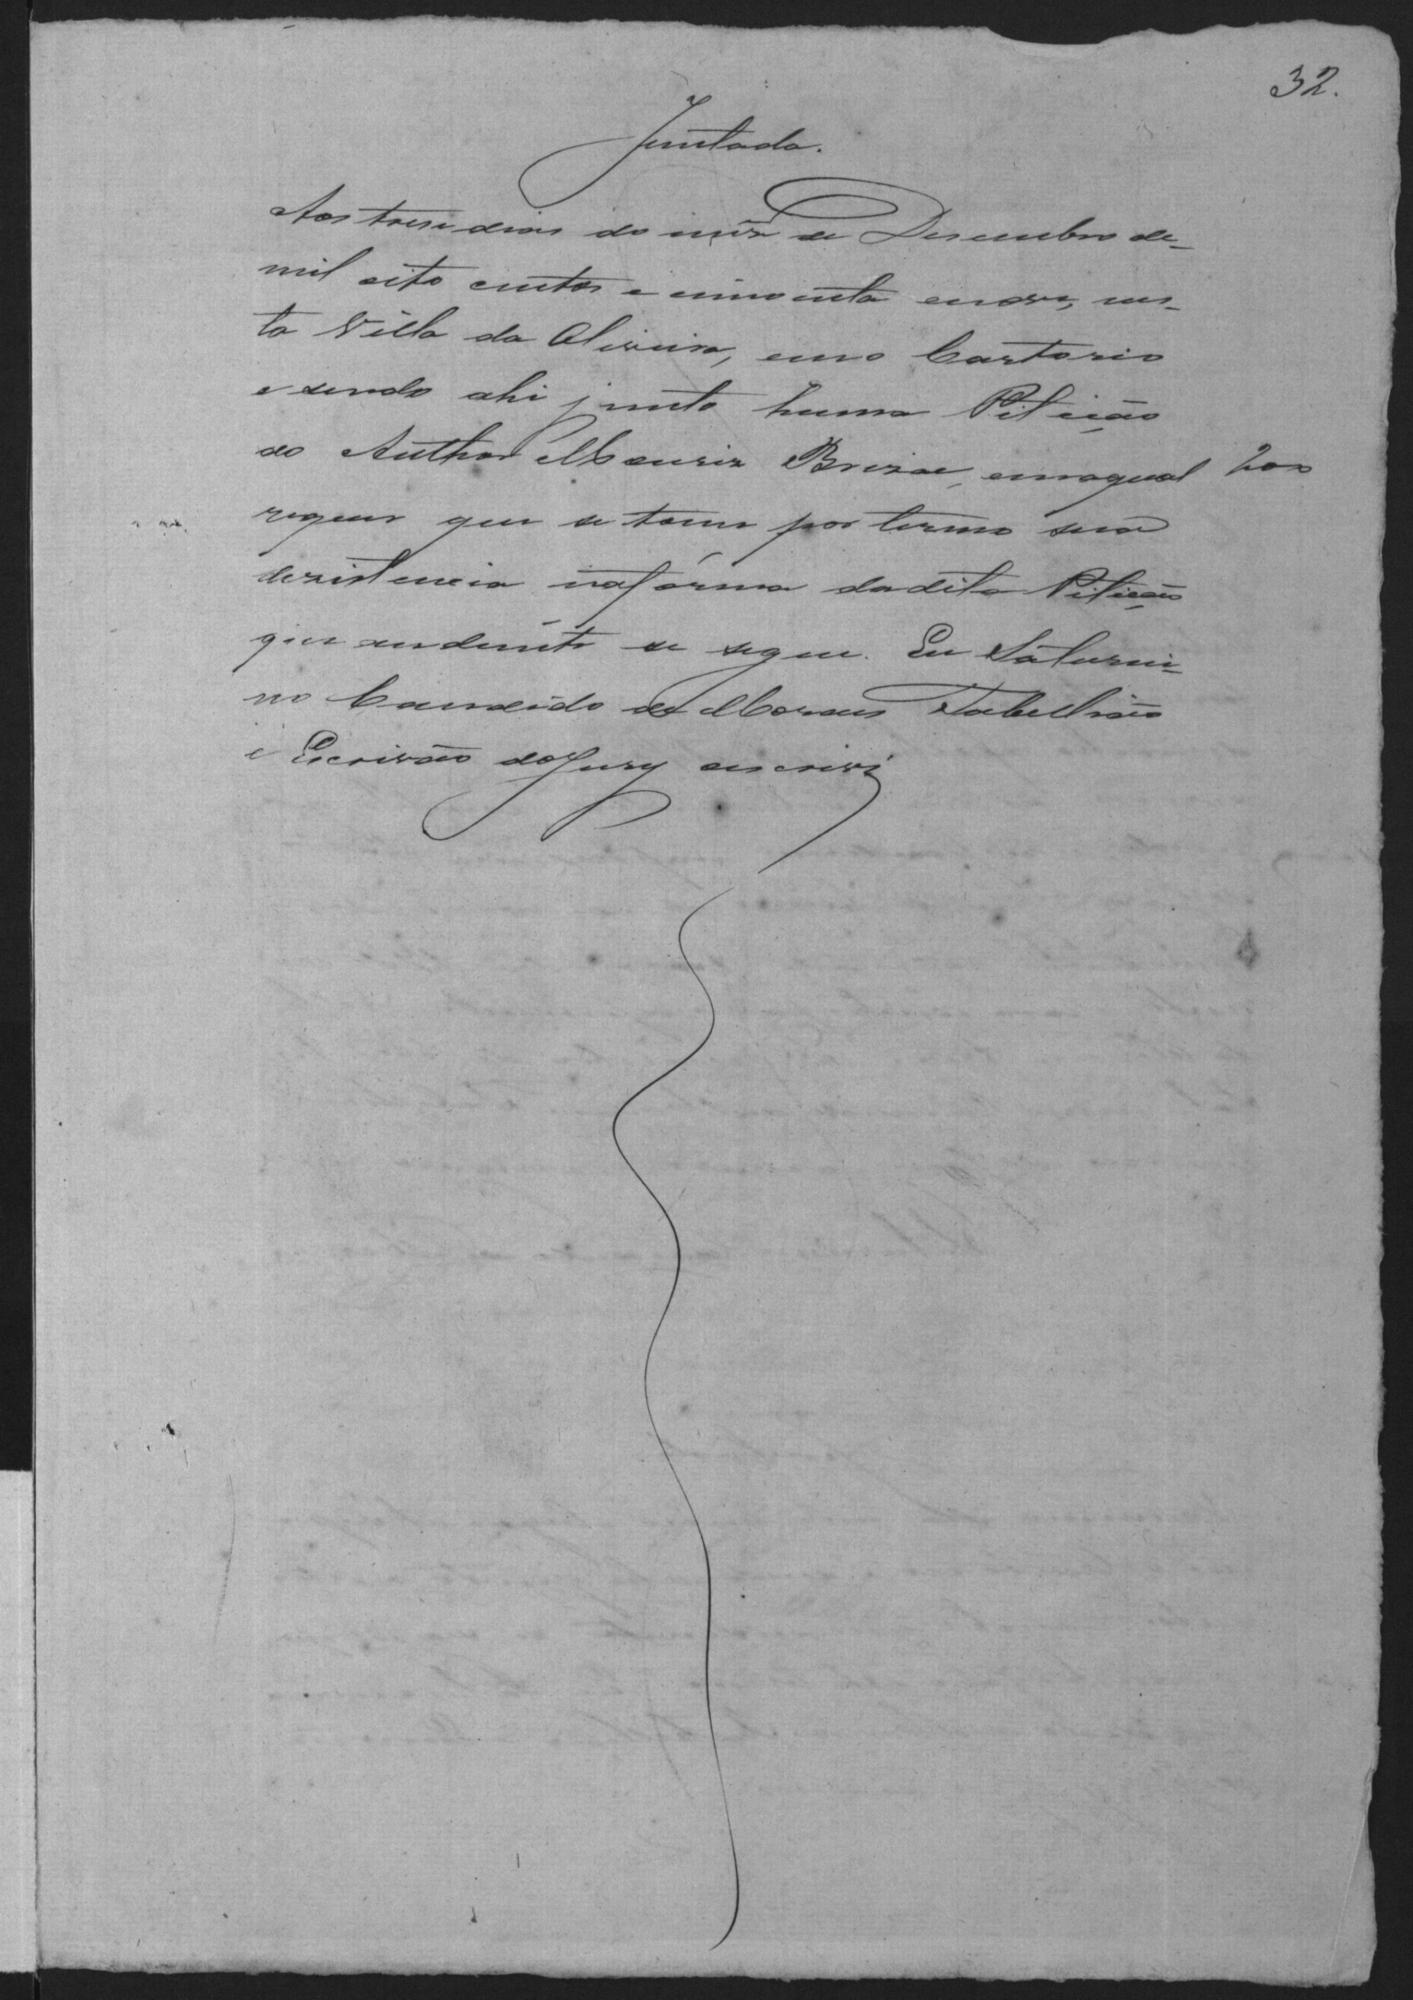 32.
Juntada.
Aos trese dias do mêz de Desembro de
mil oito centos e ninoenta enove, nes-
ta Villa da Oliveira, emo Cartorio
e sendo ahi junto huma Pitição
do Author Mouriz Brizae, emaqual 200
requer que se tome por termo sua
dezistencia na fórma da dita Pitição
que adiente se segue. Eu Saturni-
no Candido de Moraes Tabellião
e Escrivão do Jury escrivi